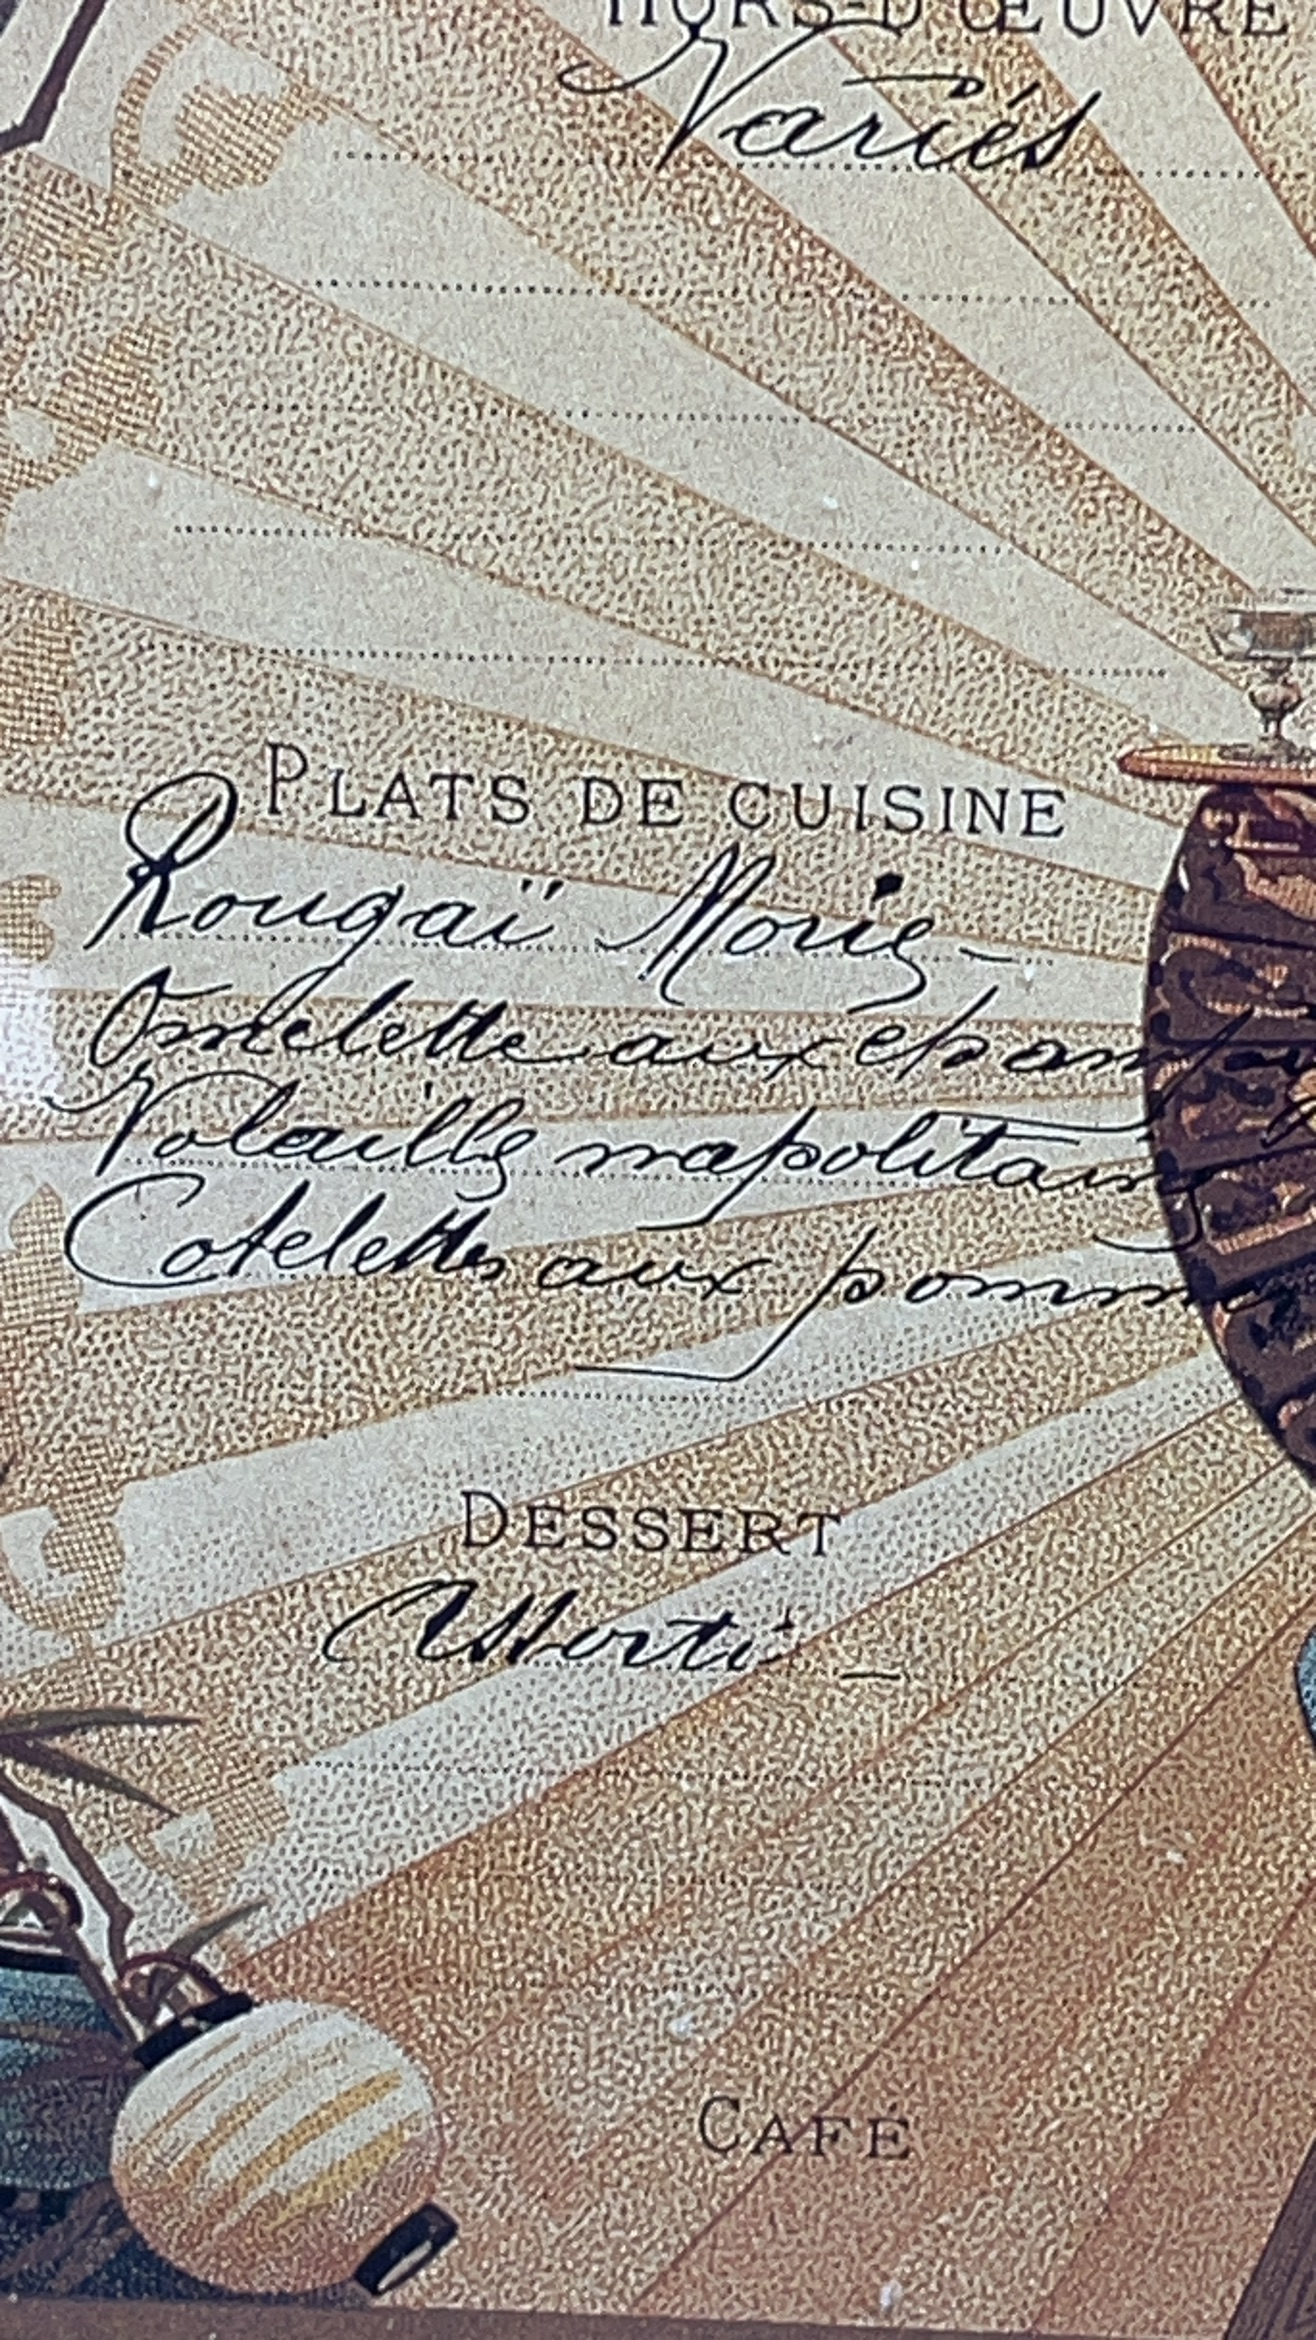 HORS-D'ŒUVRE
Variés
PLATS DE CUISINE
Rougaï
Omelette aux
Volaille napolitaine
Cotelettes aux pommes
DESSERT
Assorti
CAFÉ